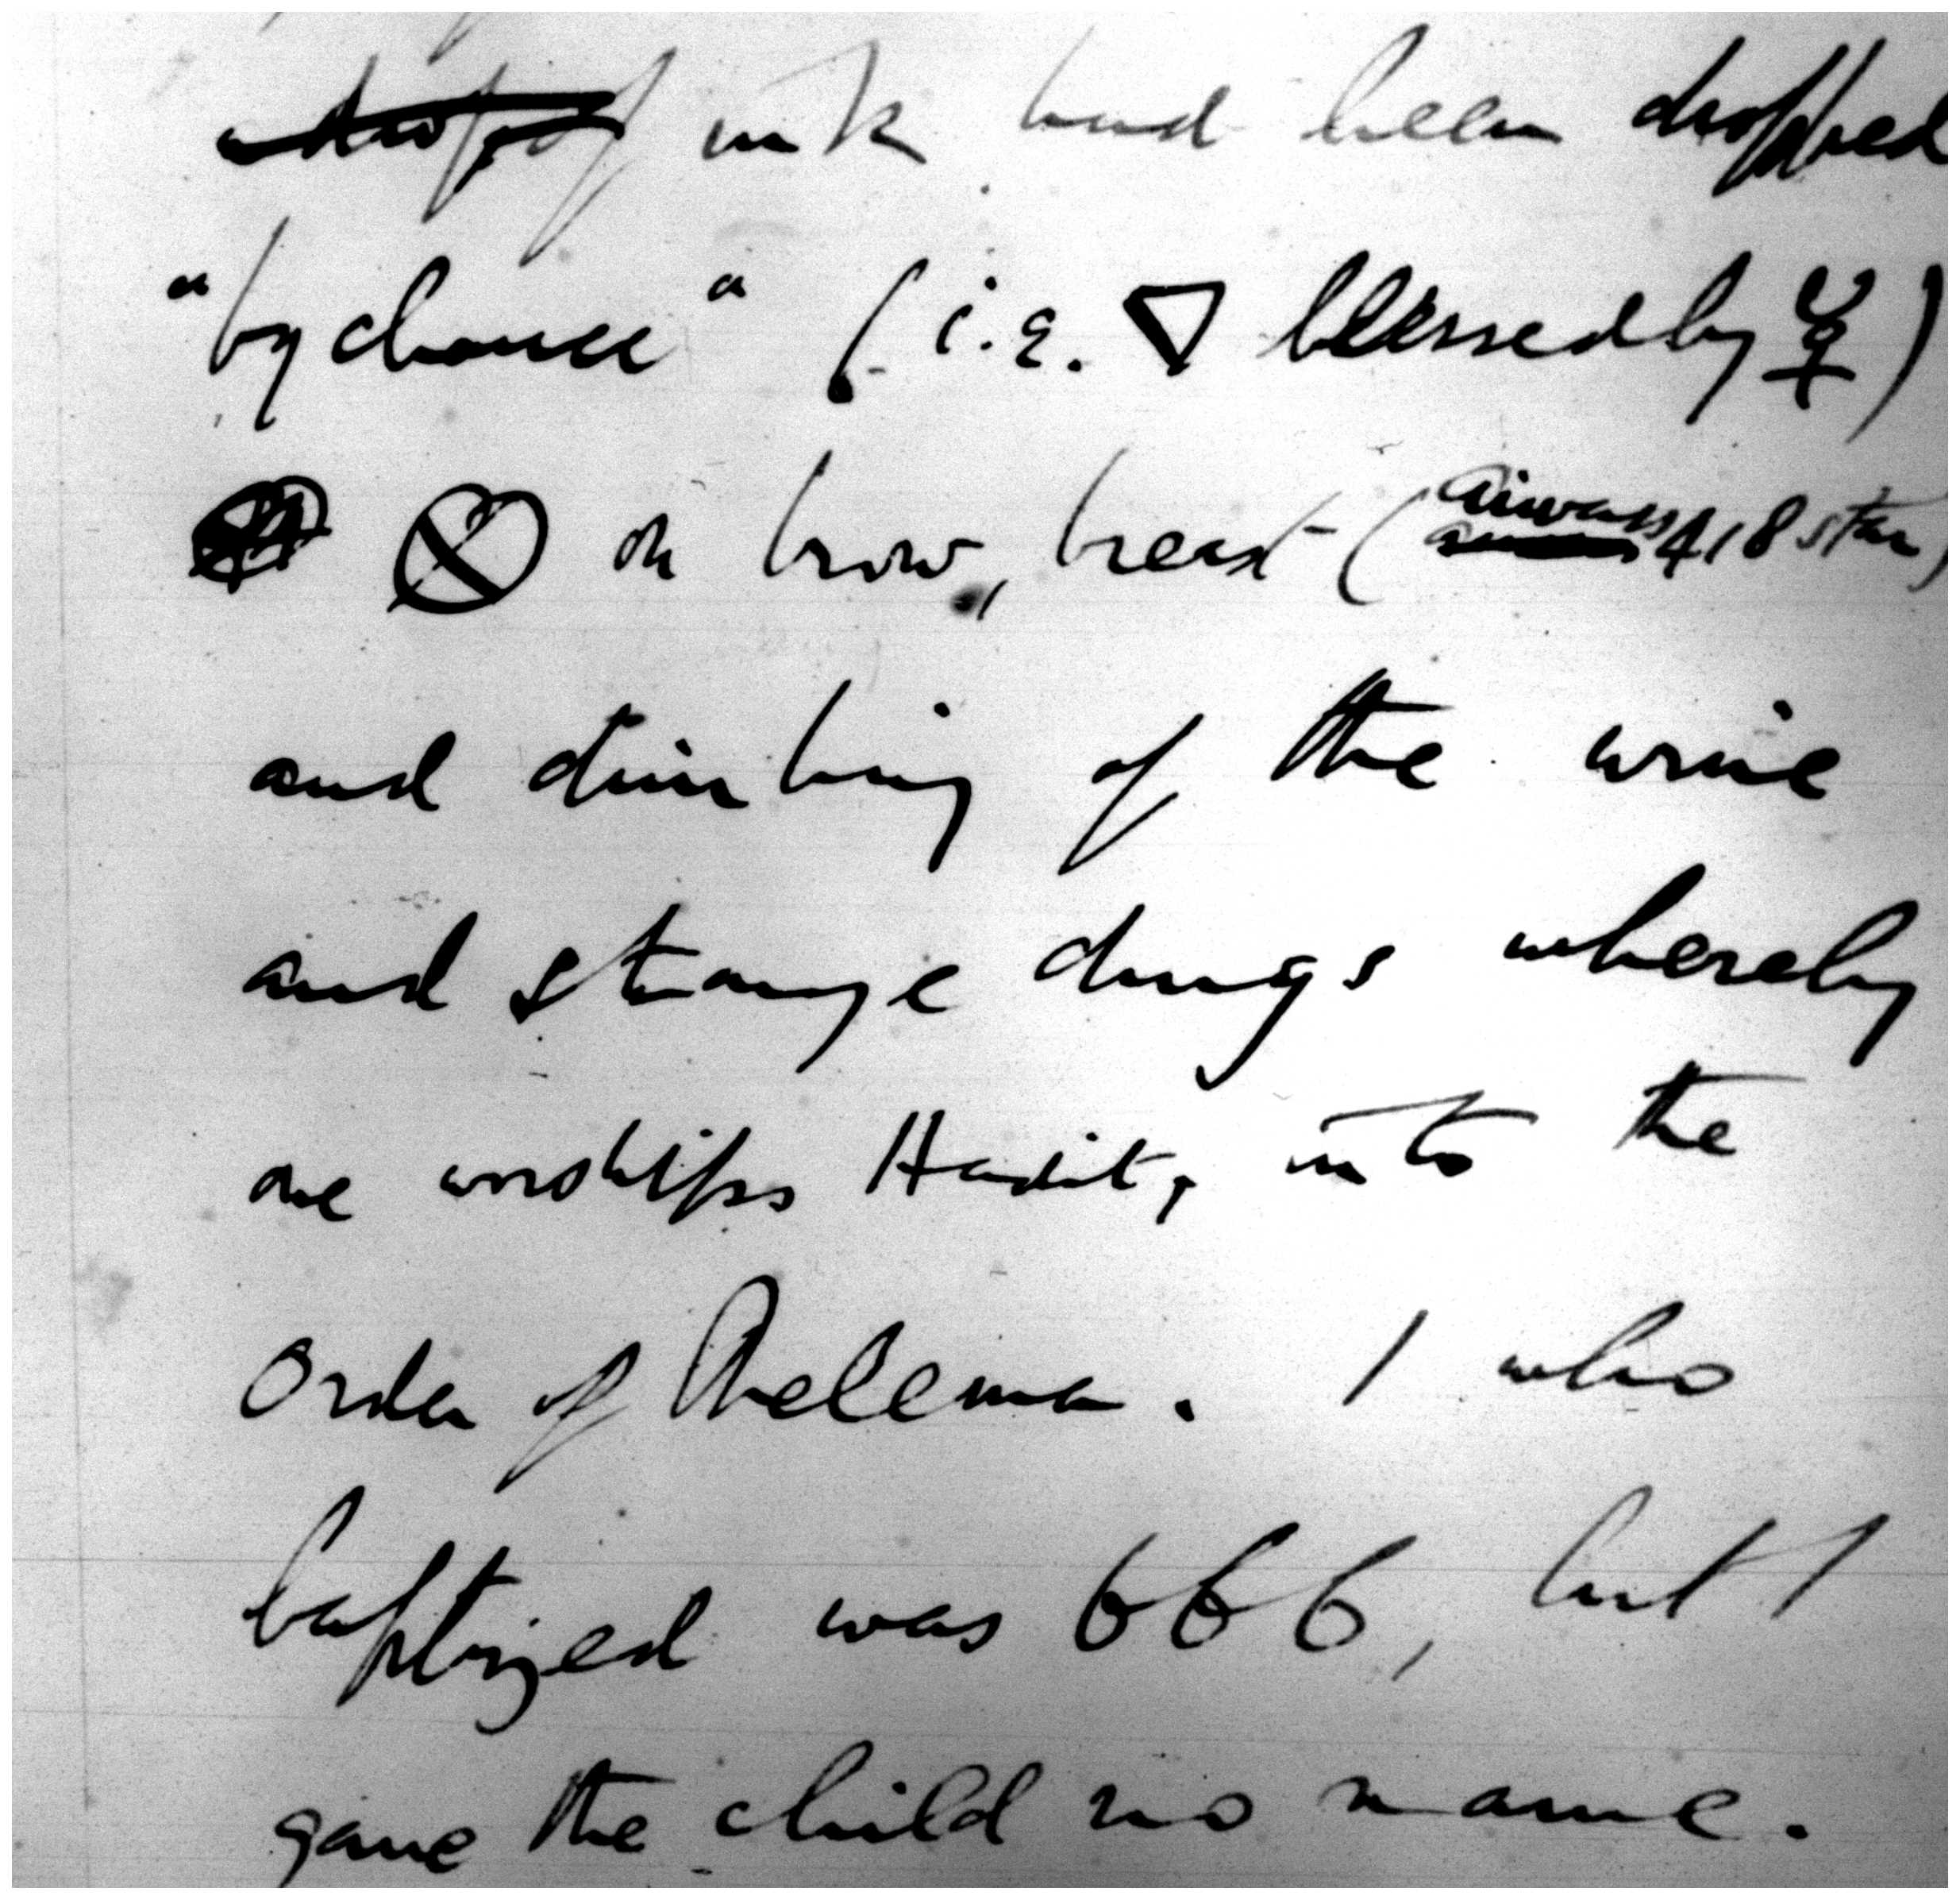 ink had been dropped
"by chance" (i.e. ▽ blessed by ☿)
⊗ on brow, breast (Aiwass 418 star)
and drinking of the wine
and strange drugs whereby
one worships Hadit, into the
Order of Thelema. I who
baptized was 666, but I
gave the child no name.